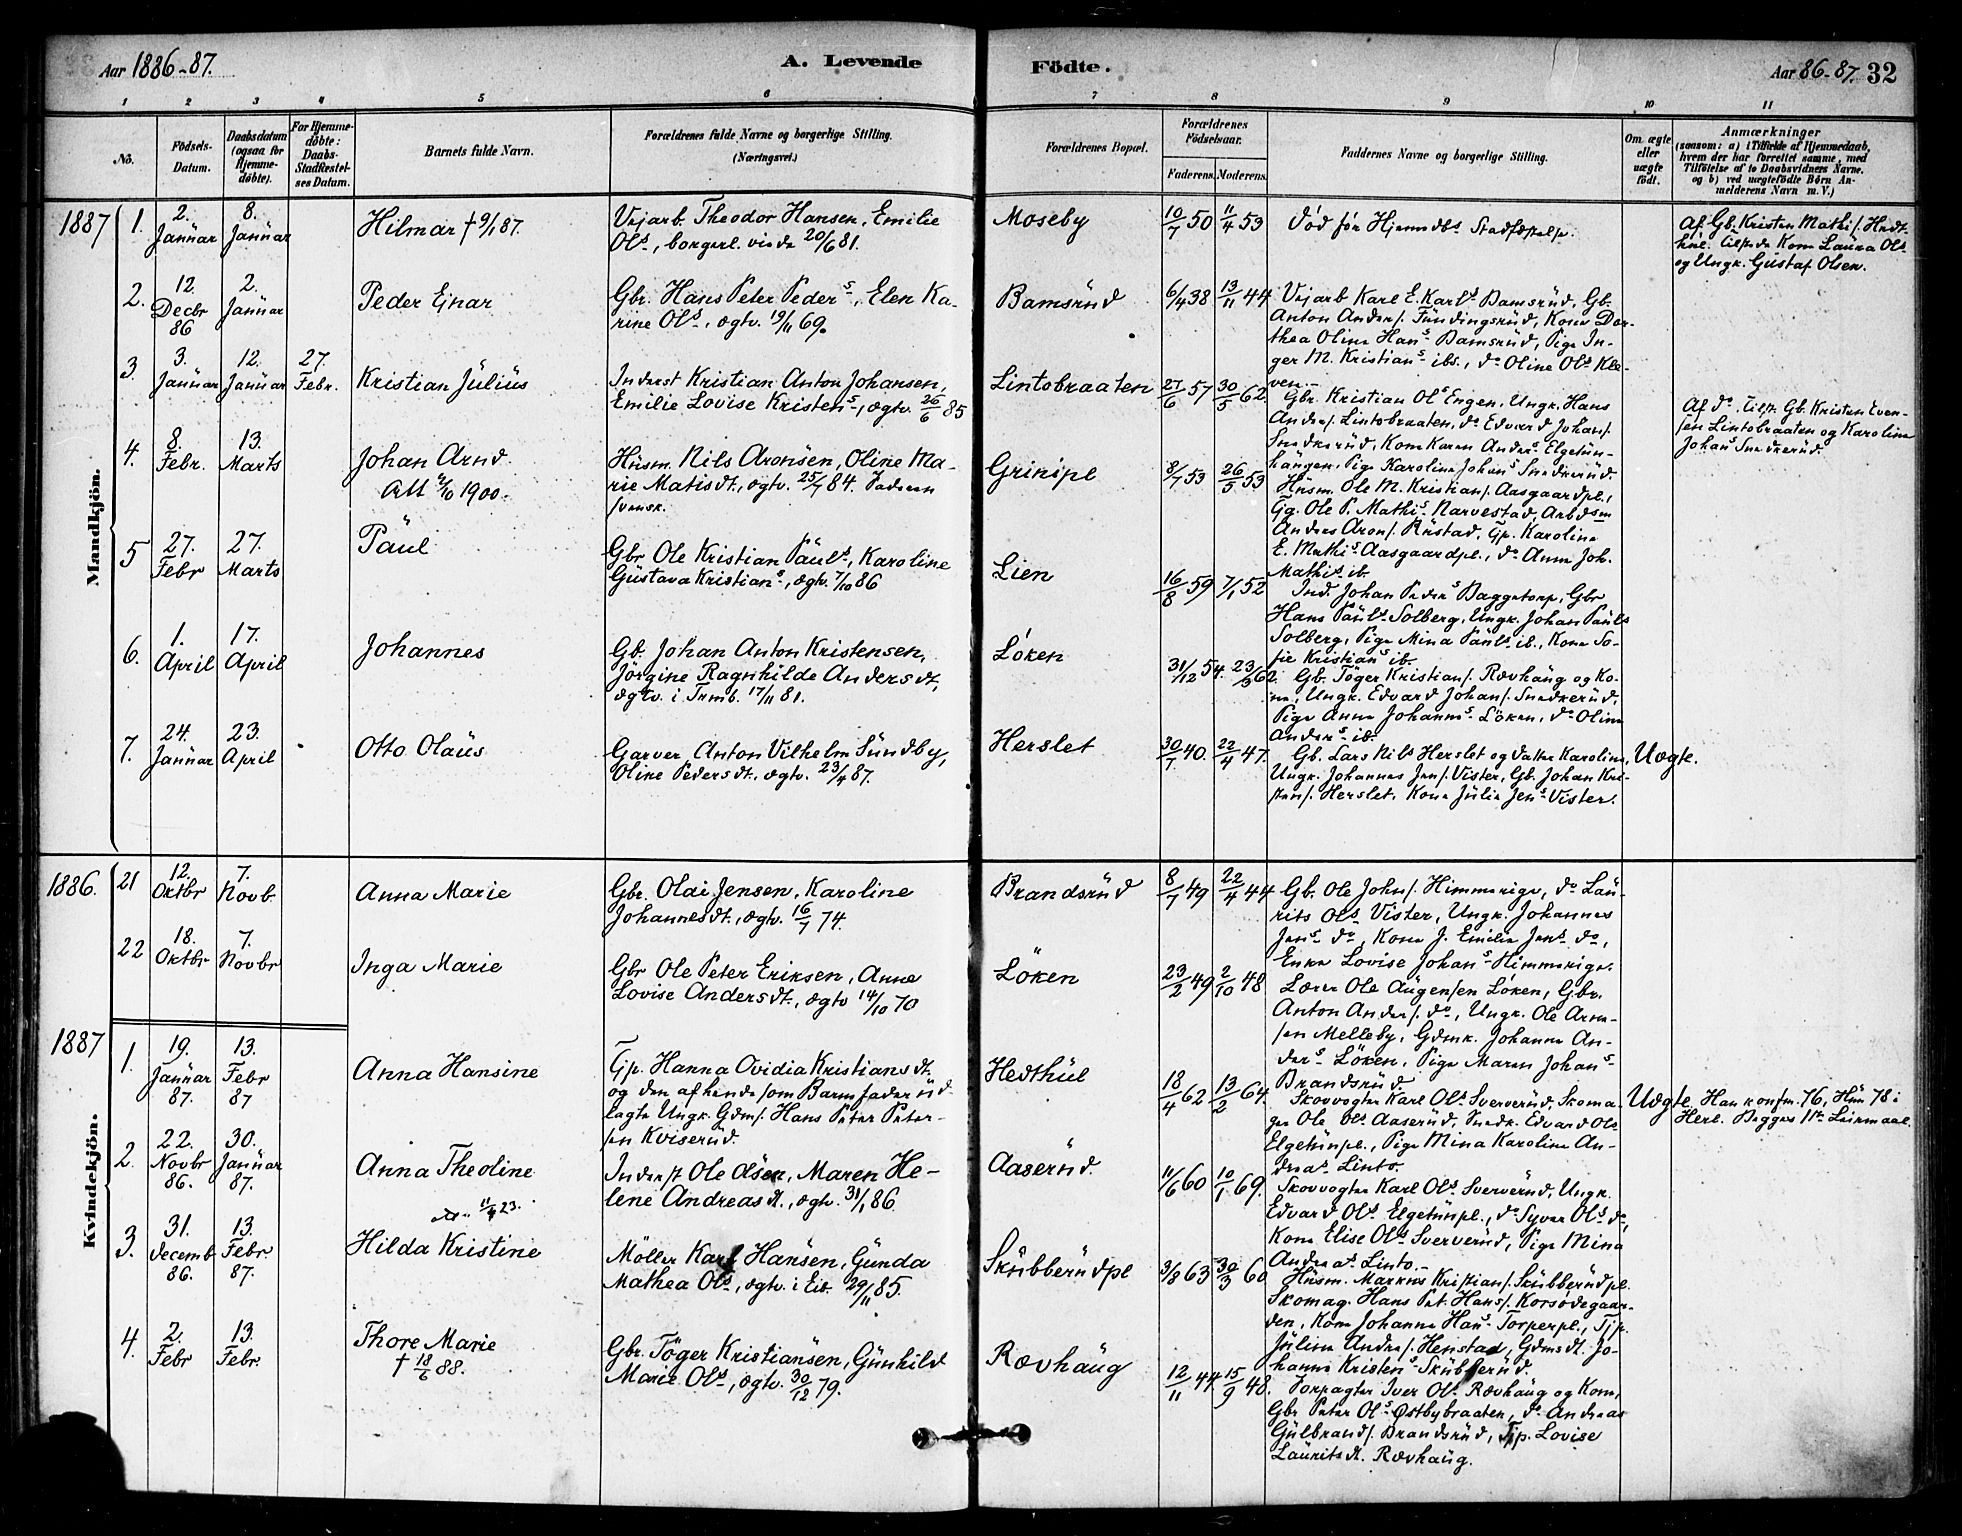 Aar 1886-87. A. Levende Födte. Aar 86-87. 32
1 2 3 4 5 6 7 8 9 10 11
No.
Födsels-
Datum.
Daabsdatum
(ogsaa for
Hjemme-
döbte).
For Hjemme-
döbte:
Daabs-
Stadfæstel-
ses Datum.
Barnets fulde Navn.
Forældrenes fulde Navne og borgerlige Stilling.
(Næringsvei.)
Forældrenes Bopæl.
Forældrenes
Födselsaar.
Faderens. Moderens.
Faddernes Navne og borgerlige Stilling.
Om ægte
eller
uægte
födt.
Anmærkninger
(saasom: a) i Tilfælde af Hjemmedaab,
hvem der har forrettet samme, med
Tilföielse af to Daabsvidners Navne.
og b) ved uægtefödte Börn An-
melderens Navn m. V.)
Mandkjön.
1887 1. 2. Januar 8. Januar
Hilmar † 9/1 87.
Vejarb. Theodor Hansen, Emilie
Ols., borgerl. viede 20/6 81.
Moseby
10/7 50 11/4 53
Död för Hjemdbs Stadfæstelse.
Af Gb. Kristen Mathis. Hedt-
hul. Tilstede Kone Laura Ols
og Ungk. Gustaf Olsen.
2. 12. Decbr 86 2. Januar
Peder Ejnar
Gbr. Hans Peter Peders, Elen Ka-
rine Ols., ægtv. 19/11 69.
Bamsrud
6/4 38 13/11 44
Vejarb Karl E. Karls Bamsrud, Gb.
Anton Anders. Fundingsrud, Kone Dor-
thea Oline Hans Bamsrud, Pige In-
ger M. Kristians ibs., do Oline Ols Kle-
ven.
3. 3. Januar 12. Januar 27. Febr.
Kristian Julius
Inderst Kristian Anton Johansen,
Emilie Lovise Kristens, ægtv. 26/6 85
Lintobraaten
27/6 57 30/5 62
Gbr. Kristian Ols Engen, Ungk. Hans
Anders. Lintobraaten, do Edvard Johans.
Snekkerud, Kone Karen Anders. Elgetun-
haugen, Pige Karoline Johans Snekkerud.
Af do. Tilst. Gb. Kristen Even-
sen Lintobraaten og Karoline
Johans Snekkerud.
4. 8. Febr. 13. Marts
Johan Arnd.
Att 2/10 1900.
Husm. Nils Aronsen, Oline Ma-
rie Matisdt., ægtv. 25/7 84. Faderen
svensk.
Grinipl
8/7 53 26/5 53
Husm. Ole M. Kristians. Aasgaardpl.,
Gg. Ole P. Mathis. Narvestad, Arbdsm
Anders Arons. Rustad, Gp. Karoline
E. Mathis. Aasgaardpl., do Anna Joh.
Mathis ib.
5 27. Febr 27. Marts
Paul
Gbr Ole Kristian Pauls, Karoline
Gustava Kristians., ægtv. 7/10 86
Lien
16/8 59 7/1 52
Ind. Johan Peders Baggetorp, Gbr
Hans Pauls Solberg, Ungk. Johan Pauls
Solberg, Pige Mina Pauls ib., Kone So-
fie Kristians ib.
6. 1. April 17. April
Johannes
Gb. Johan Anton Kristensen,
Jörgine Ragnhilde Andersdt,
ægtv. i Trmb. 17/11 81.
Löken
31/12 54. 23/9 62.
Gb. Töger Kristians. Rævhaug og Ko-
ne, Ungk. Edvard Johans. Snekkerud,
Pige Anna Johanns. Löken, do Oline
Anders. ib.
7. 24. Januar 23. April
Otto Olaus
Garver Anton Vilhelm Sundby,
Oline Pedersdt. ægtv. 23/4 87.
Herslet
30/7 40. 22/4 47.
Gb. Lars Nils Herslet og Datter Karoline,
Ungk. Johannes Jens. Vister, Gb. Johan Kri-
stens. Herslet. Kone Julie Jens Vister.
Uægte.
Kvindekjön.
1886. 21 12. Oktbr 7. Novb.
Anna Marie
Gbr. Olai Jensen, Karoline
Johannesdt., ægtv. 16/7 74.
Brandsrud
8/7 49 22/4 44
Gb. Ole Johs. Himmerige, do Lau-
rits Ols Vister, Ungk. Johannes
Jens do, Kone J. Emilie Jens do,
Enke Lovise Johans Himmerige.
22 18. Oktbr 7. Novbr
Inga Marie
Gbr Ole Peter Eriksen, Anne
Lovise Andersdt., ægtv 14/10 70
Löken
23/2 49 2/10 48
Lærer Ole Augensen Löken, Gbr.
Anton Anders. do, Ungk. Ole Arne-
sen Melleby, Gdmk. Johanne An-
ders Löken, Pige Maren Johans
Brandsrud
1887 1. 19. Januar 87. 13. Febr 87
Anna Hansine
Tjp. Hanna Ovidia Kristiansdt.
og den af hende som Barnefader ud-
lagte Ungk. Gdms. Hans Peter Peter-
sen Kviserud.
Hedthul
18/4 62 13/2 64
Skovvogter Karl Ols Sververud, Skoma-
ger Ole Ols Aaserud, Snedk. Edvard Ols
Elgetunpl., Pige Mina Karoline An-
dreas Linto.
Uægte. Han konfm. 76, Hun 78 i
Herl. Begges 1ste Leiermaal.
2. 22. Novbr 86. 30. Januar 87.
Anna Theoline
11/4 23.
Inderst Ole Olsen, Maren He-
lene Andreasdt., ægtv. 31/1 86.
Aaserud
11/6 60 10/1 69.
Skovvogter Karl Ols. Sververud, Ungk.
Edvard Ols. Elgetunpl., do Syver Ols. do,
Kone Elise Ols Sververud, Pige Mina
Andreas. Linto.
3. 31. Decemb. 86. 13. Febr 87.
Hilda Kristine
Möller Karl Hansen, Gunda
Mathea Ols., ægtv. i Eib. 29/11 85.
Skubberudpl
3/8 63 30/3 60
Husm. Markus Kristians. Skubberudpl.
Skomag. Hans Pet. Hans. Korsödegaar-
den, Kone Johanna Hans Torperpl., Tjp.
Juline Andrs. Henstad, Gdmsdt. Jo-
hanne Kristens Skubberud.
4. 2. Febr 13. Febr.
Thore Marie
† 18/6 88.
Gbr. Töger Kristiansen, Gunhild
Marie Ols, ægtv. 30/12 79.
Rævhaug
12/11 44 15/9 48.
Forpagter Iver Ols Rævhaug og Kone,
Gbr Peter Ols Østbybraaten, do Andreas
Gulbrands. Brandsrud, Tjp. Lovise
Lauritsdt. Rævhaug.